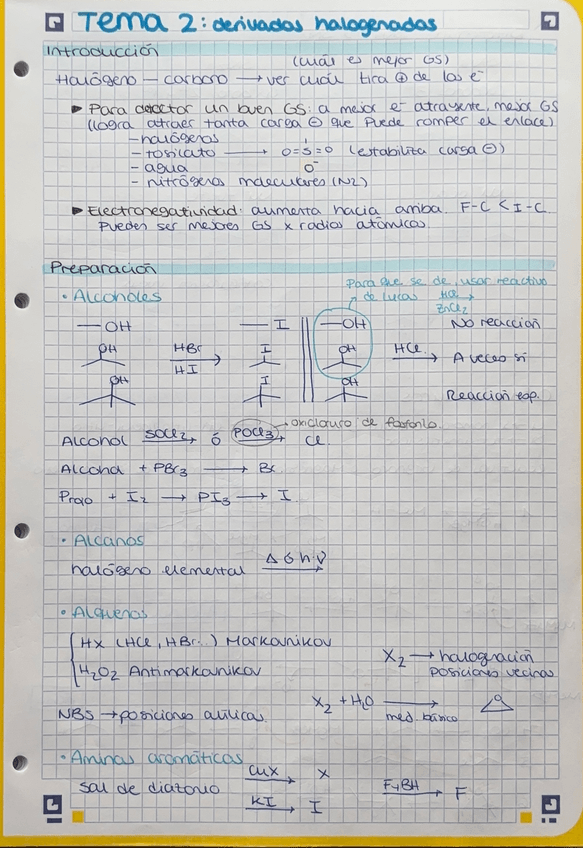 Tema 2: derivados halogenados
Introducción
(cuál es mejor GS)
Halógeno — carbono → ver cuál tira ⊕ de los e⁻
▶ Para detectar un buen GS: a mejor e⁻ atrayente, mejor GS
(logra atraer tanta carga ⊖ que puede romper el enlace)
- halógenos
- tosilato → O=S=O (estabiliza carga ⊖)
- agua O⁻
- nitrógenos moleculares (N2)
▶ Electronegatividad: aumenta hacia arriba. F-C < I-C
Pueden ser mejores GS x radios atómicos
Preparación
Para que se de, usar reactivo
• Alcoholes de lucas HCl
ZnCl2
— OH — I —OH No reacción
OH HBr I OH HCl → A veces sí
HI
OH I OH Reacción esp.
Alcohol SOCl2 → ó POCl3 → Cl oxicloruro de fosforilo
Alcohol + PBr3 → Br
Projo + I2 → PI3 → I
• Alcanos
halógeno elemental Δ ó h·ν →
• Alquenos
HX (HCl, HBr...) Markovnikov
X2 → halogenación
H2O2 Antimarkovnikov posiciones vecinas
X2 + H2O → med. básico
NBS → posiciones alílicas
• Aminas aromáticas
sal de diazonio CuX → X
F4BH → F
KI → I